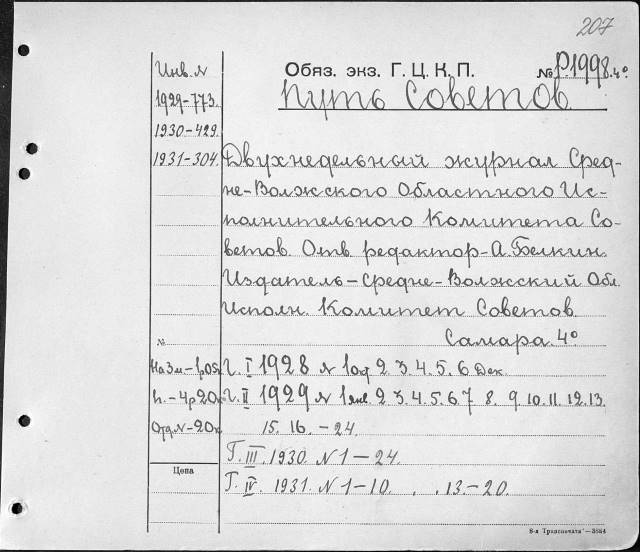 207
Обяз. экз. Г. Ц. К. П. № Р.1998.4°
Путь Советов
Инв. №
1929-773.
1930-429.
1931-304.
Двухнедельный журнал Сред-
не-Волжского Областного Ис-
полнительного Комитета Со-
ветов. Отв. редактор-А. Белкин.
Издатель-Средне-Волжский Обл.
Исполн. Комитет Советов.
№ Самара. 4°
На 3м-1р05к Г. I 1928 № 1 2. 3. 4. 5. 6 Дек.
п.-4р20к Г. II 1929 № 1янв. 2. 3. 4. 5. 6. 7 8. 9. 10. 11. 12. 13.
Отд.№-20к 15. 16. -24.
Г. III. 1930. № 1-24.
Цена
Г. IV. 1931. № 1-10. , . 13.-20.
8-я Транспечать-3884